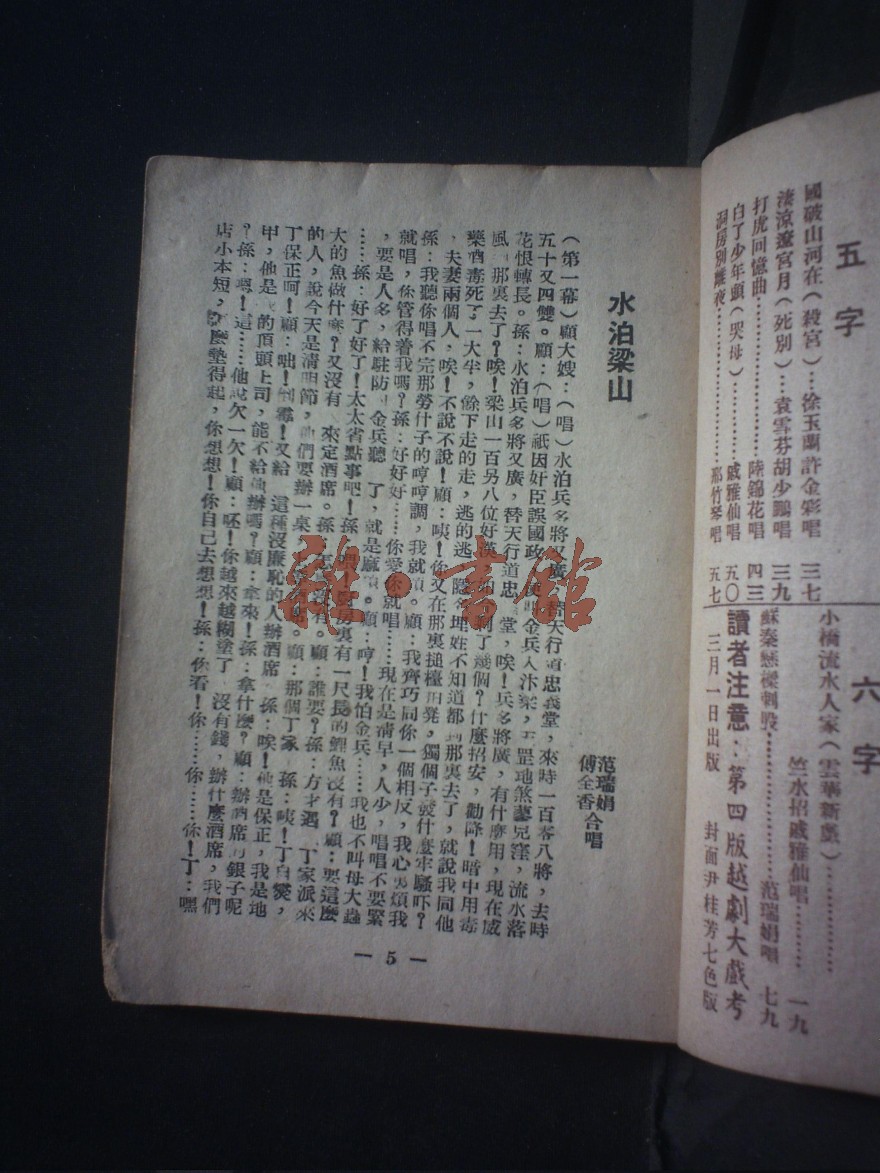 五字
國破山河在(殺宮)…徐玉蘭許金彩唱 三七
淒涼遼宮月(死別)…袁雪芬胡少鵬唱 三九
打虎回憶曲………陸錦花唱 四三
白了少年頭(哭母)………戚雅仙唱 五〇
洞房別離夜………邢竹琴唱 五七
六字
小橋流水人家(雲華新戲)………
竺水招戚雅仙唱……… 一九
蘇秦懸樑刺股………范瑞娟唱 七九
讀者注意:第四版越劇大戲考
三月一日出版 封面尹桂芳七色版
水泊梁山
范瑞娟
傅全香合唱
(第一幕)顧大嫂:(唱)水泊兵多將又廣,替天行道忠義堂,來時一百零八將,去時
五十又四雙。顧:(唱)祇因奸臣誤國政,金兵入汴梁,天罡地煞蓼兒窪,流水落
花恨轉長。孫:水泊兵多將又廣,替天行道忠 堂,唉!兵多將廣,有什麽用,現在威
風 那裏去了?唉!梁山一百另八位好漢,如 剩了幾個?什麽招安,勸降!暗中用毒
藥酒毒死了一大半,餘下走的走,逃的逃,隱名埋姓不知道都 那裏去了,就說我同他
,夫妻兩個人,唉!不說不說!顧:咦!你又在那裏搥檯 凳,獨個子發什麽牢騷吓?
孫:我聽你唱不完那勞什子的哼哼調,我就 煩。顧:我齊巧同你一個相反,我心 煩我
就唱,你管得着我嗎?孫:好好好……你愛你就唱……現在是清早,人少,唱唱不要緊
,要是人多,給駐防 金兵聽 了,就是麻煩。顧:哼!我怕金兵……我也不叫母大蟲
……孫:好了好了!太太省點事吧!孫 喂!廚房裏有一尺長的鯉魚沒有?顧:要這麽
大的魚做什麽?又沒有 來定酒席。孫 怎麽沒有。顧:誰要?孫:方才遇 丁家派來
的人,說今天是清明節,他們要辦一桌 酒席。顧:那個丁家 孫:咦!丁自燮,
丁保正呵!顧:咄!倒霉!又給 這種沒廉恥的人辦酒席 孫:唉!他是保正,我是地
甲,他是 的頂頭上司,能不給他辦嗎?顧:拿來!孫:拿什麽?顧:辦酒席 銀子呢
?孫:嗯!這……他說欠一欠!顧:呸!你越來越糊塗了 沒有錢,辦什麽酒席,我們
店小本短, 麽墊得起,你想想!你自己去想想!孫:你看!你……你……你!丁:嘿
— 5 —